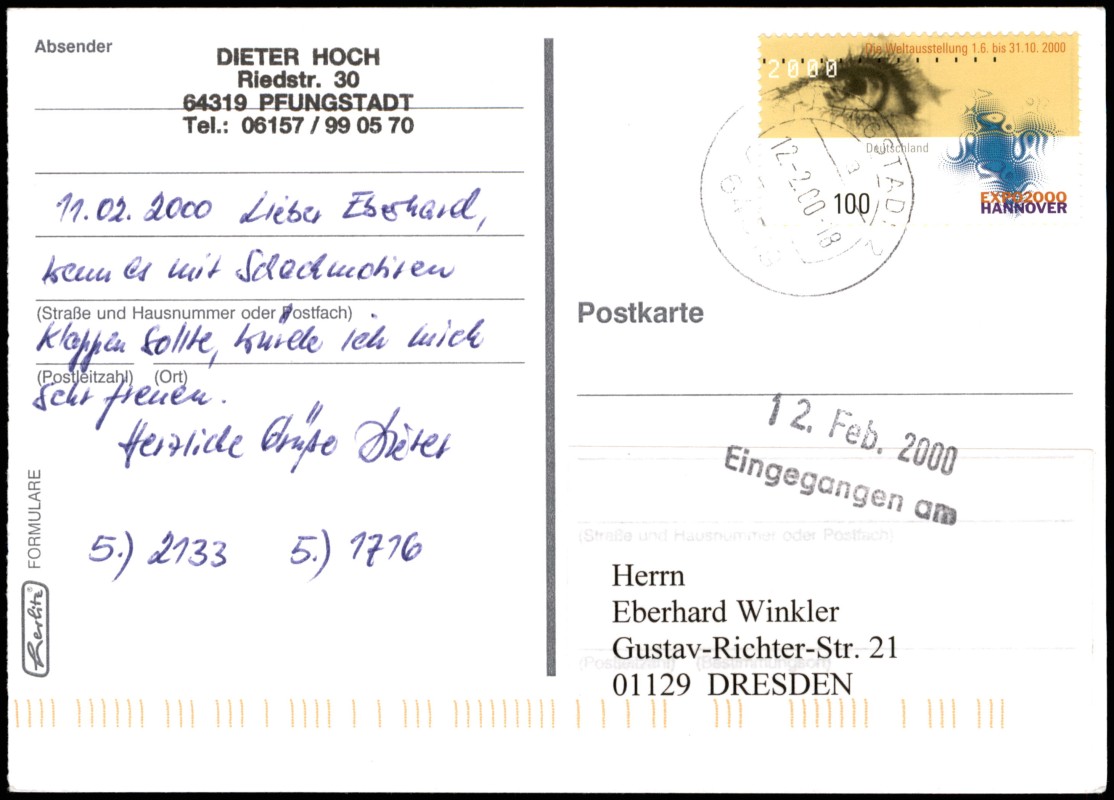 Absender
DIETER HOCH
Riedstr. 30
64319 PFUNGSTADT
Tel.: 06157 / 99 05 70
11.02. 2000 Lieber Eberhard,
wenn es mit Schachmotiven
(Straße und Hausnummer oder Postfach)
klappen sollte, würde ich mich
(Postleitzahl) (Ort)
sehr freuen.
Herzliche Grüße Dieter
5.) 2133 5.) 1716
FORMULARE
Herlitz
Die Weltausstellung 1.6. bis 31.10. 2000
2000
Deutschland
100
EXPO2000
HANNOVER
12.-2.00-18
Postkarte
12. Feb. 2000
Eingegangen am
(Straße und Hausnummer oder Postfach)
Herrn
Eberhard Winkler
Gustav-Richter-Str. 21
(Postleitzahl) (Bestimmungsort)
01129 DRESDEN